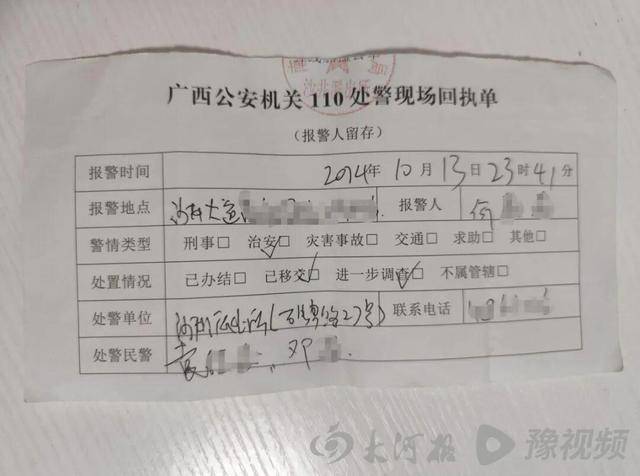 沙北派出所
广西公安机关 110 处警现场回执单
(报警人留存)
报警时间 2024年 10月 13日 23时 41分
报警地点 大道 报警人 何
警情类型 刑事□ 治安□ 灾害事故□ 交通□ 求助□ 其他□
处置情况 已办结□ 已移交□ 进一步调查□ 不属管辖□
处警单位 派出所(27号) 联系电话
处警民警 邓
大河报 豫视频